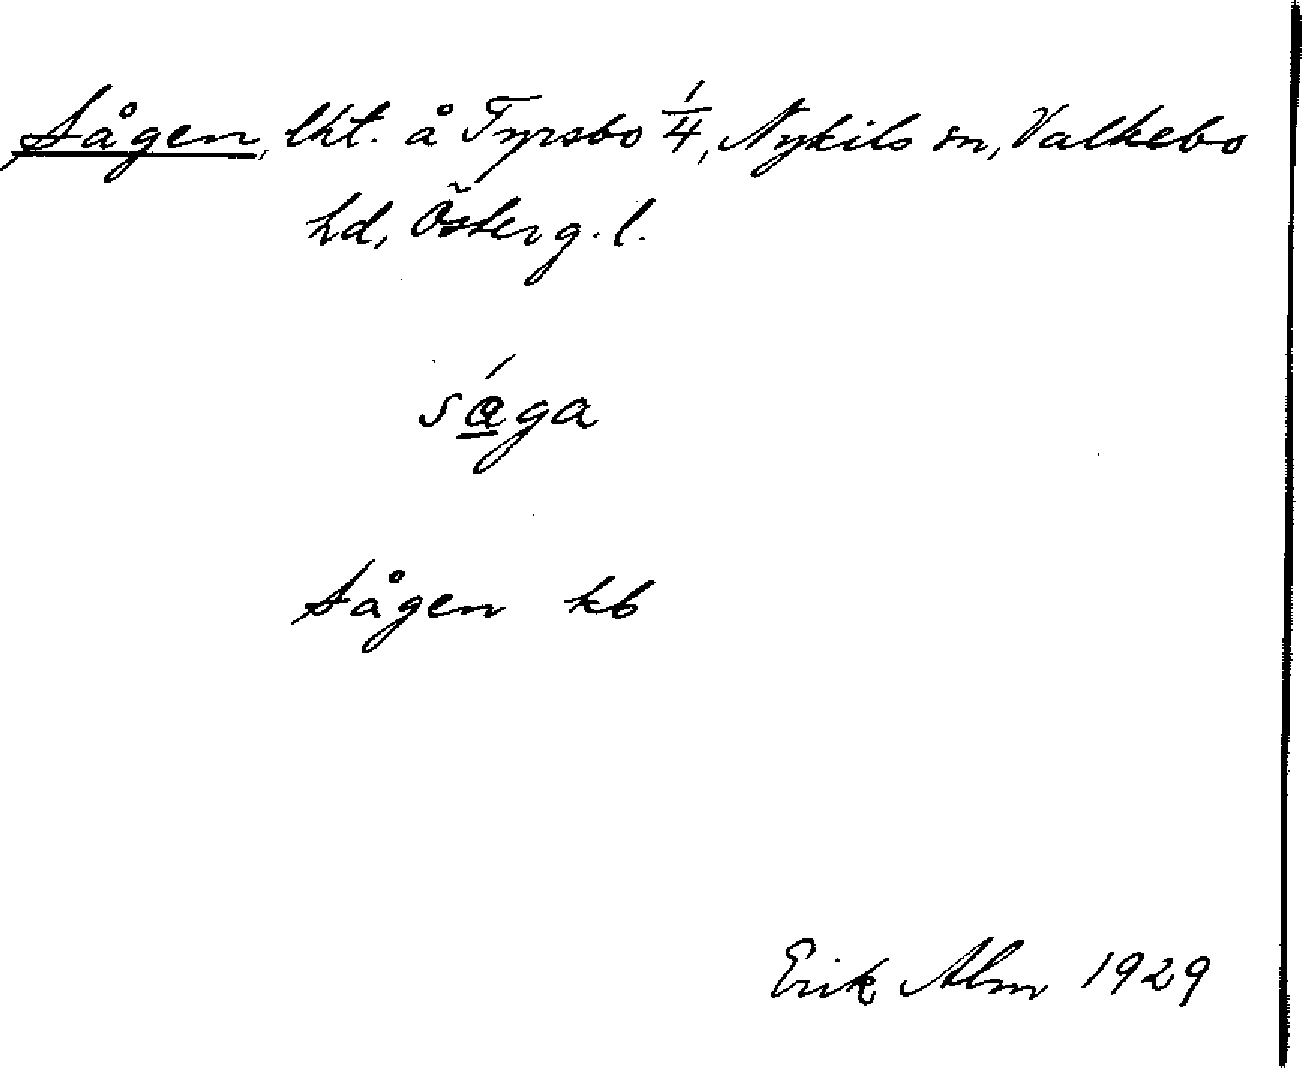 Sågen, lht. å Tyrsbo 1/4, Nykils sn, Valkebo
hd, Österg. l.
såga
Sågen kb
Erik Alm 1929